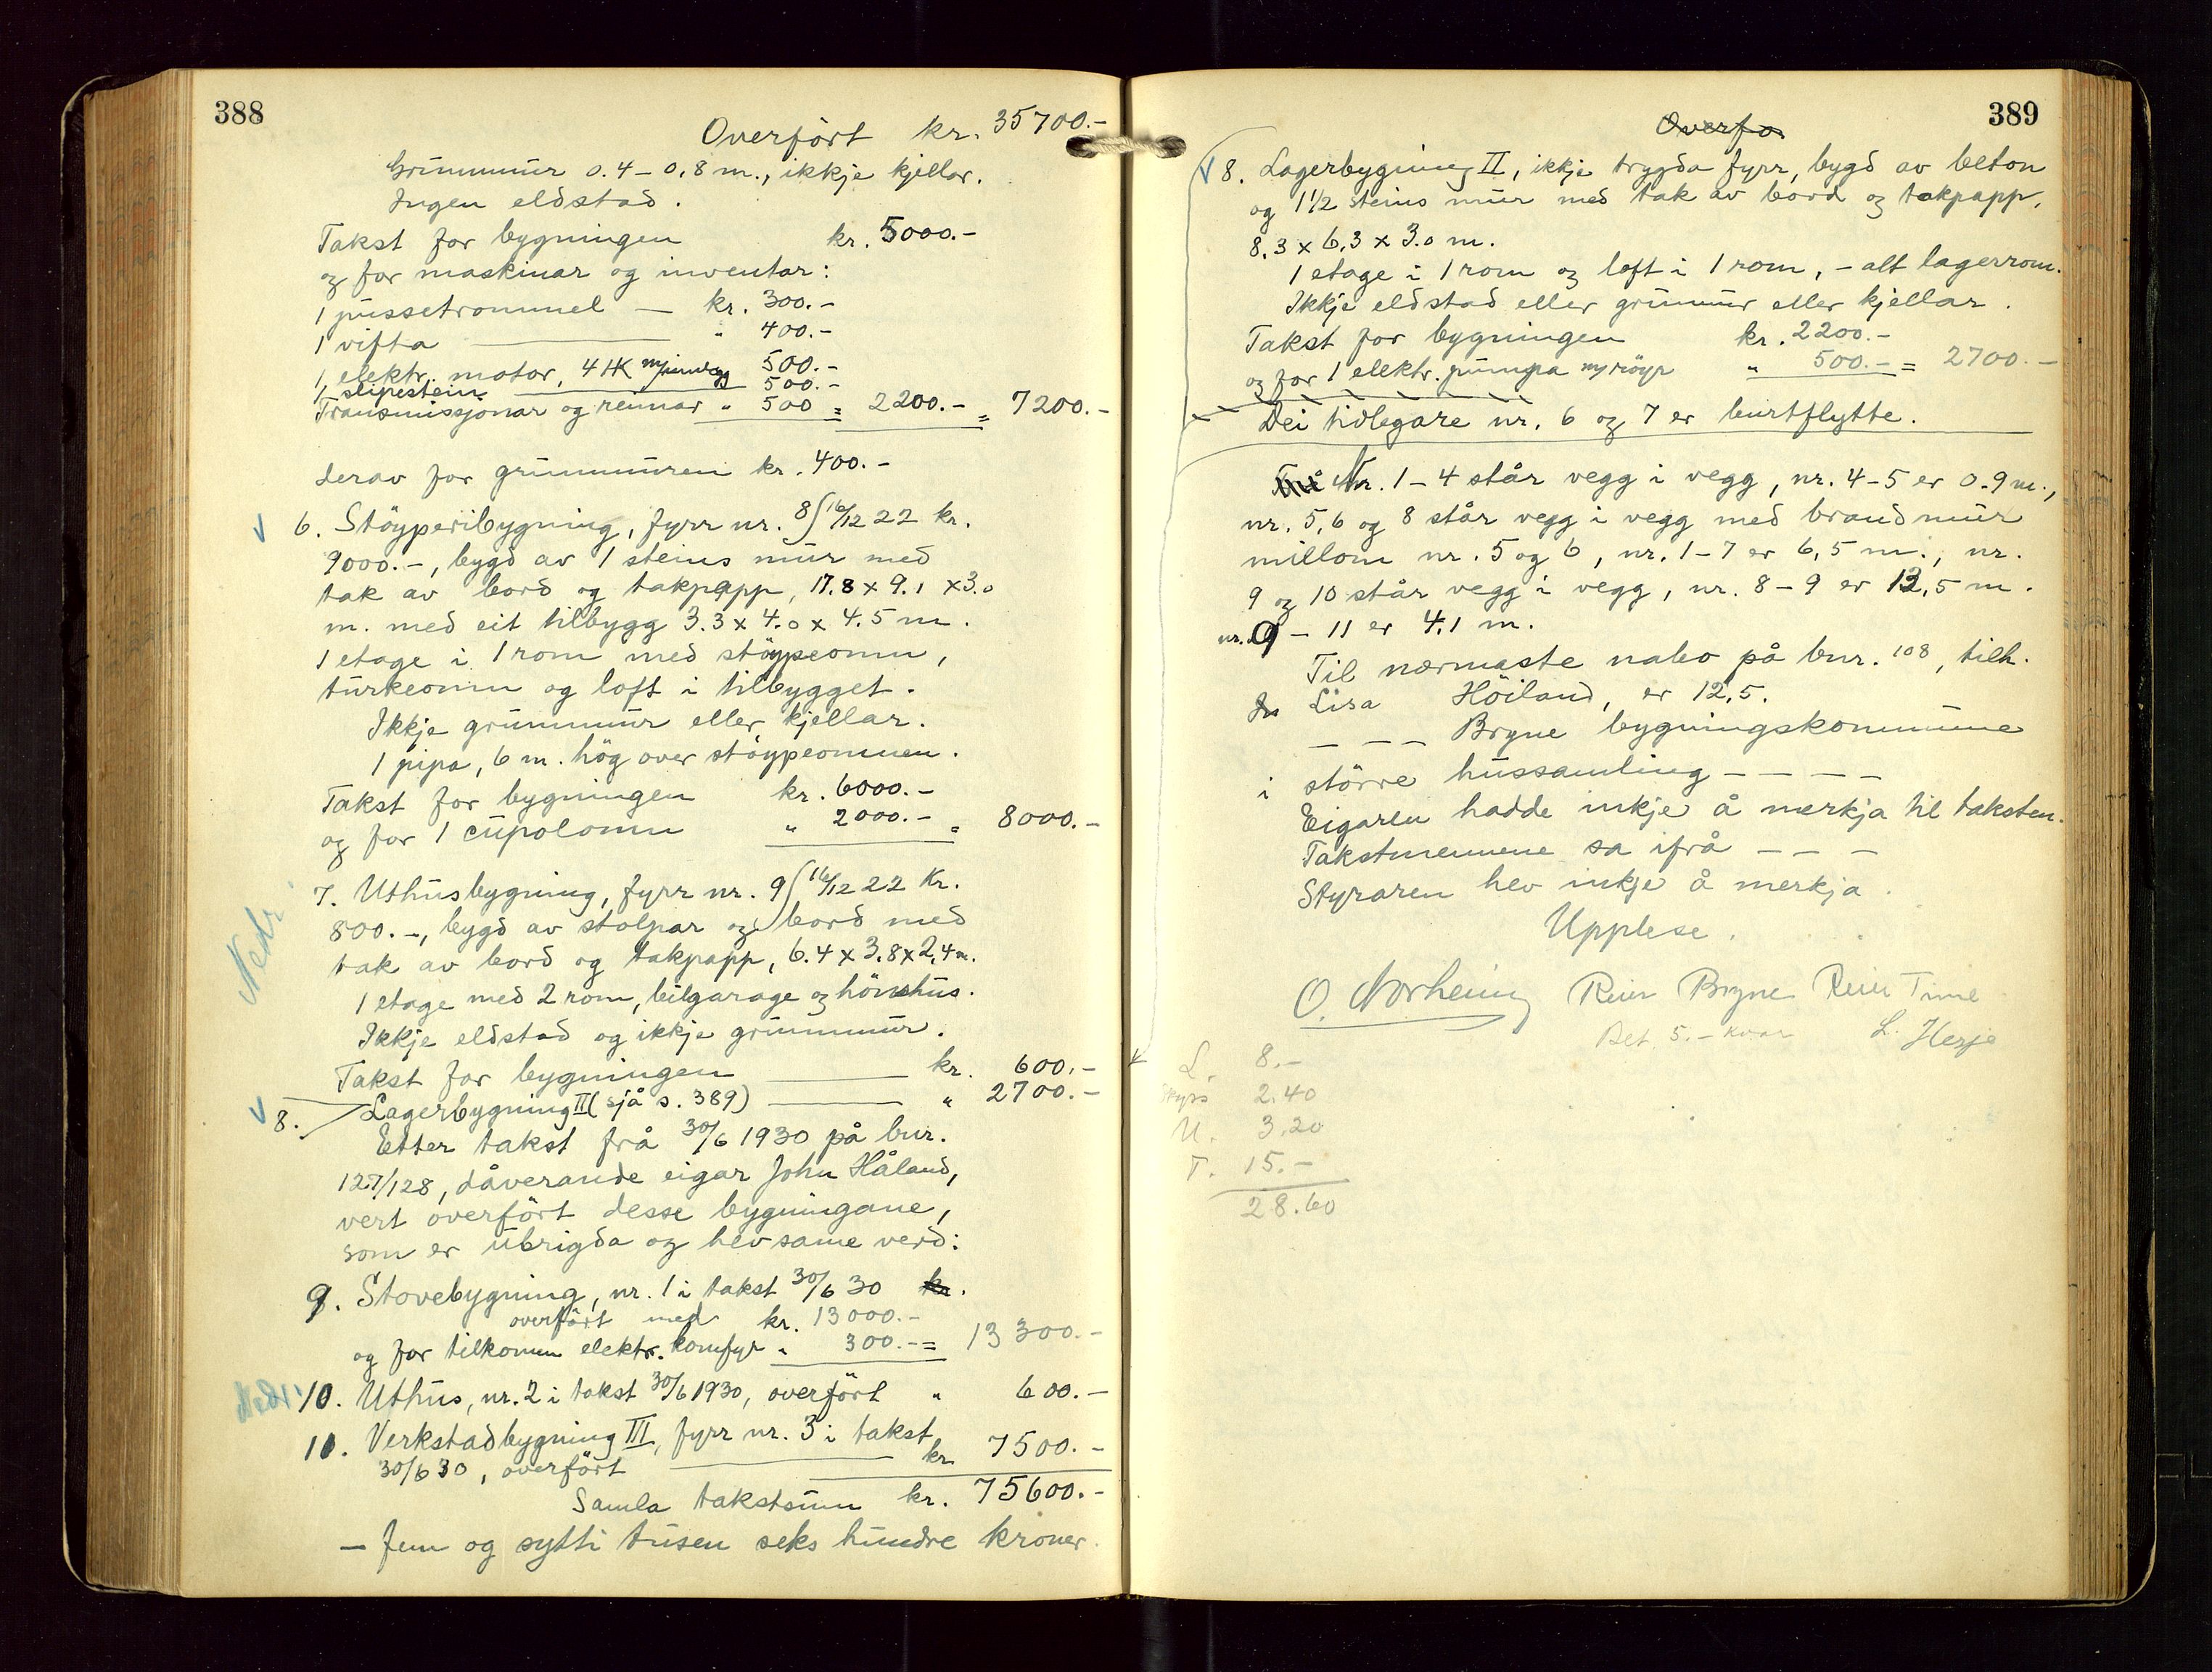 388
Overført kr. 35700.-
Grunnmur 0.4 – 0,8 m., ikkje kjellar.
Ingen eldstad.
Takst for bygningen kr. 5000.-
og for maskinar og inventar:
1 pussetrommel — kr. 300.-
1 vifta — " 400.-
1 elektr. motor, 4 HK 500.-
1 slipestein 500.-
Transmissjonar og reimar " 500 = 2200.- = 7200.-
derav for grunnmuren kr. 400.-
6. Støyperibygning, fyrr nr. 8 16/12 22 kr.
9000.-, bygd av 1 steins mur med
tak av bord og takpapp, 17.8 x 9.1 x 3.0
m. med eit tilbygg 3.3 x 4.0 x 4.5 m.
1 etage i 1 rom med støypeomn,
turkeomn og loft i tilbygget.
Ikkje grunnmur eller kjellar.
1 pipa, 6 m. høg over støypeomnen.
Takst for bygningen kr. 6000.-
og for 1 cupolomn " 2000.- = 8000.-
Nedr.
7. Uthusbygning, fyrr nr. 9 16/12 22 Kr.
800.-, bygd av stolpar og bord med
tak av bord og takpapp, 6.4 x 3.8 x 2,4 m.
1 etage med 2 rom, bilgarage og hønshus.
Ikkje eldstad og ikkje grunnmur.
Takst for bygningen — kr. 600.-
8. Lagerbygning II (sjå s. 389) — " 2700.-
Etter takst frå 30/6 1930 på bnr.
127/128, dåverande eigar John Håland,
vert overført desse bygningane,
som er ubrigda og hev same verd:
9. Stovebygning, nr. 1 i takst 30/6 30 kr.
overført med kr. 13000.-
og for tilkomen elektr. komfyr " 300.- = 13300.-
Nedr. 10. Uthus, nr. 2 i takst 30/6 1930, overført " 600.-
11. Verkstadbygning III, fyrr nr. 3 i takst
30/6 30, overført — kr. 7500.-
Samla takstsum kr. 75600.-
— fem og sytti tusen seks hundre kroner.
389
Overfø
8. Lagerbygning II, ikkje trygda fyrr, bygd av beton
og 1 1/2 steins mur med tak av bord og takpapp,
8.3 x 6.3 x 3.0 m.
1 etage i 1 rom og loft i 1 rom, - alt lagerrom.
Ikkje eldstad eller grunnmur eller kjellar.
Takst for bygningen kr. 2200.-
og for 1 elektr. pumpa m/røyr " 500.- = 2700.-
Dei tidlegare nr. 6 og 7 er burtflytte.
Nr. 1 – 4 står vegg i vegg, nr. 4 – 5 er 0.9 m.,
nr. 5, 6 og 8 står vegg i vegg med brandmur
millom nr. 5 og 6, nr. 1 – 7 er 6,5 m., nr.
9 og 10 står vegg i vegg, nr. 8 – 9 er 12,5 m.
nr. 9 – 11 er 4.1 m.
Til nærmaste nabo på bnr. 108, tilh.
Lisa Høiland, er 12,5.
— — — Bryne bygningskommune
i større hussamling — — — —
Eigaren hadde inkje å merkja til taksten.
Takstmennene sa ifrå — — —
Styraren hev inkje å merkja.
Upplese.
O. Norheim Reier Bryne Reier Time
Bet. 5.- kvar L. Herje
L. 8.-
Skyss 2.40
U. 3.20
T. 15.-
28.60